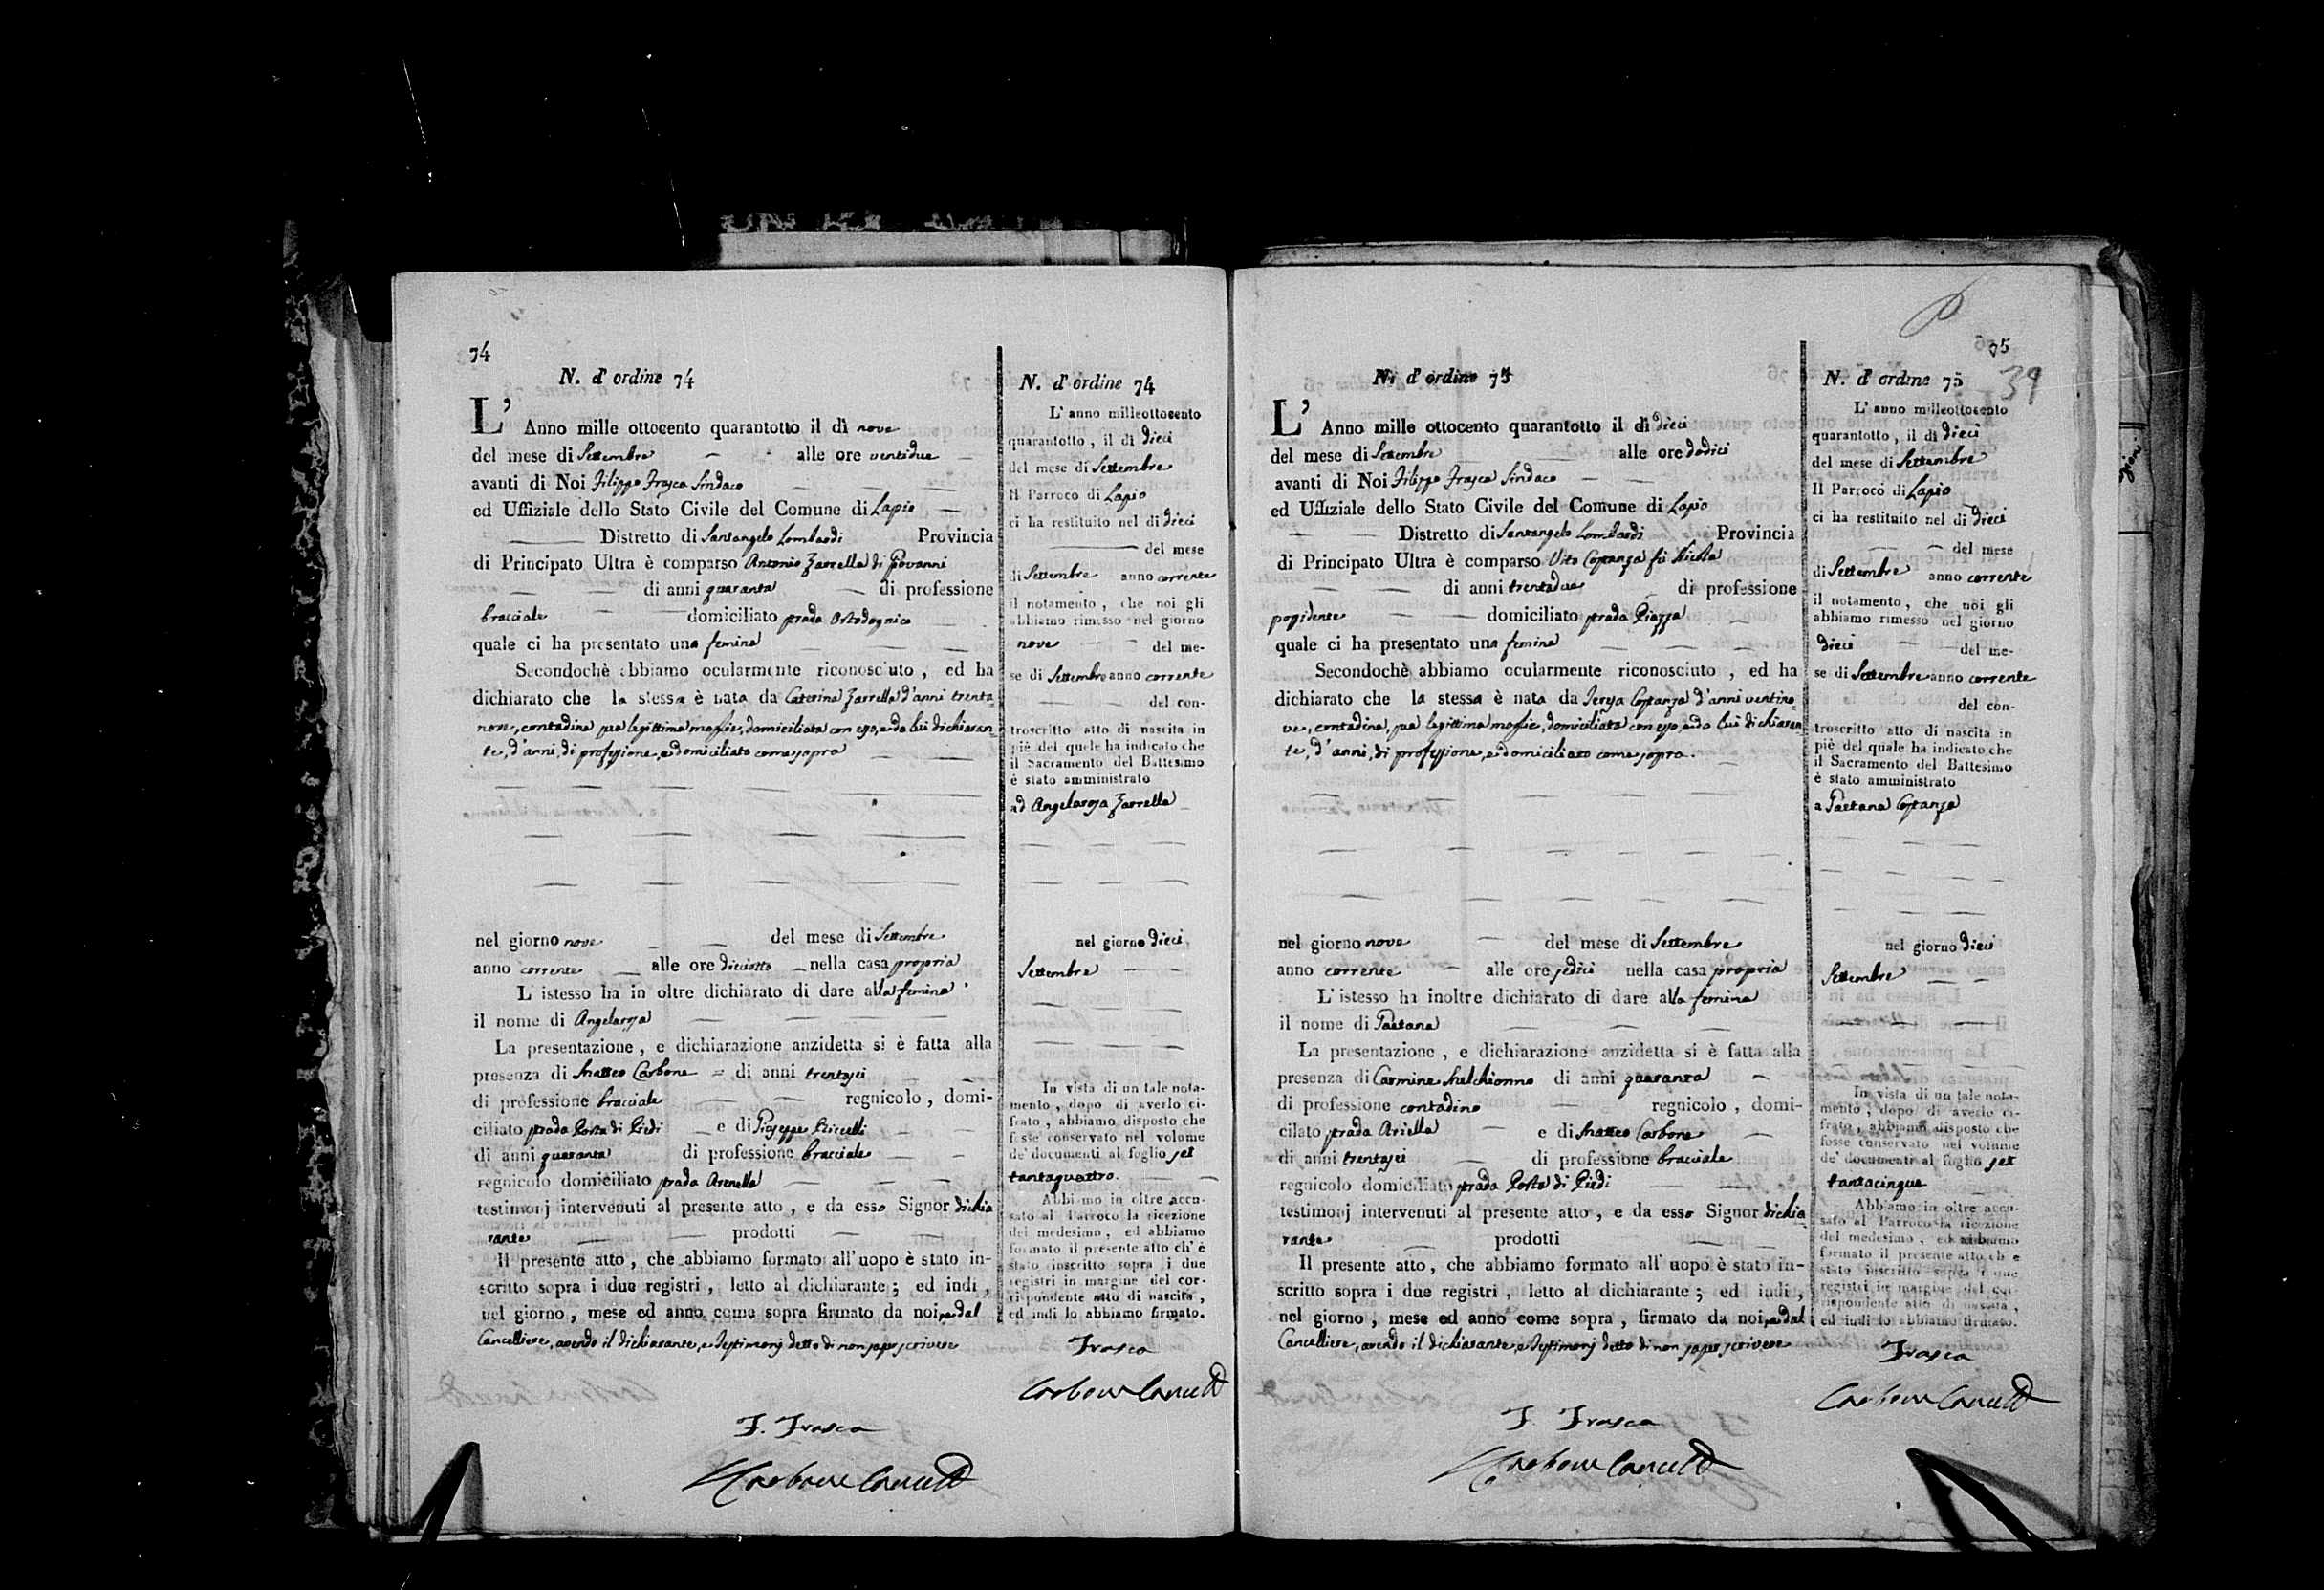 74
N. d' ordine 74
L' Anno mille ottocento quarantotto il dì nove
del mese di Settembre alle ore ventidue
avanti di Noi Filippo Frasca Sindaco
ed Uffiziale dello Stato Civile del Comune di Lapio
Distretto di Santangelo Lombardi Provincia
di Principato Ultra è comparso Antonio Zarrella di Giovanni
di anni quaranta di professione
bracciale domiciliato strada
quale ci ha presentato una femina
Secondochè abbiamo ocularmente riconosciuto, ed ha
dichiarato che la stessa è nata da Caterina Zarrella d'anni trenta
nove, contadina sua legittima moglie, domiciliata con esso, e da lui dichiaran
te, d'anni, di professione, e domiciliato come sopra
nel giorno nove del mese di Settembre
anno corrente alle ore diciotto nella casa propria
L' istesso ha in oltre dichiarato di dare alla femina
il nome di Angelarosa
La presentazione, e dichiarazione anzidetta si è fatta alla
presenza di Matteo Carbone = di anni trentasei
di professione bracciale regnicolo, domi-
ciliato strada Porta di Piedi e di Giuseppe Ciccelli
di anni quaranta di professione bracciale
regnicolo domiciliato strada Arenella
testimonj intervenuti al presente atto, e da esso Signor dichia
rante prodotti
Il presente atto, che abbiamo formato all' uopo è stato in-
scritto sopra i due registri, letto al dichiarante; ed indi,
nel giorno, mese ed anno come sopra firmato da noi, e dal
Cancelliere, avendo il dichiarante, e Testimonj detto di non saper scrivere
F. Frasca
Carbone Cancell
N. d' ordine 74
L' anno milleottocento
quarantotto, il dì dieci
del mese di Settembre
Il Parroco di Lapio
ci ha restituito nel dì dieci
del mese
di Settembre anno corrente
il notamento, che noi gli
abbiamo rimesso nel giorno
nove del me-
se di Settembre anno corrente
del con-
troscritto atto di nascita in
piè del quele ha indicato che
il Sacramento del Battesimo
è stato amministrato
ad Angelarosa Zarrella
nel giorno dieci
Settembre
In vista di un tale nota-
mento, dopo di averlo ci-
frato, abbiamo disposto che
fosse conservato nel volume
de' documenti al foglio set
tantaquattro.
Abbiamo in oltre accu-
sato al Parroco la ricezione
del medesimo, ed abbiamo
formato il presente atto ch' è
stato inscritto sopra i due
registri in margine del cor-
rispondente atto di nascita,
ed indi lo abbiamo firmato.
Frasca
Carbone Cancell
75
39
N. d' ordine 75
L' Anno mille ottocento quarantotto il dì dieci
del mese di Settembre alle ore dodici
avanti di Noi Filippo Frasca Sindaco
ed Uffiziale dello Stato Civile del Comune di Lapio
Distretto di Santangelo Lombardi Provincia
di Principato Ultra è comparso Vito Costanza fù Nicola
di anni trentadue di professione
possidente domiciliato strada Piazza
quale ci ha presentato una femina
Secondochè abbiamo ocularmente riconosciuto, ed ha
dichiarato che la stessa è nata da Teresa Costanza d'anni ventino
ve, contadina, sua legittima moglie, domiciliata con esso, e da lui dichiaran
te, d'anni, di professione, e domiciliato come sopra.
nel giorno nove del mese di Settembre
anno corrente alle ore sedici nella casa propria
L' istesso ha inoltre dichiarato di dare alla femina
il nome di Gaetana
La presentazione, e dichiarazione anzidetta si è fatta alla
presenza di Carmine Melchionno di anni quaranta
di professione contadino regnicolo, domi-
cilato strada Ariella e di Matteo Carbone
di anni trentasei di professione bracciale
regnicolo domiciliato strada Porta di Piedi
testimonj intervenuti al presente atto, e da esso Signor dichia
rante prodotti
Il presente atto, che abbiamo formato all' uopo è stato in-
scritto sopra i due registri, letto al dichiarante; ed indi,
nel giorno, mese ed anno come sopra, firmato da noi, e dal
Cancelliere, avendo il dichiarante, e Testimonj detto di non saper scrivere
F. Frasca
Carbone Cancell
N. d' ordine 75
L' anno milleottocento
quarantotto, il dì dieci
del mese di Settembre
Il Parroco di Lapio
ci ha restituito nel dì dieci
del mese
di Settembre anno corrente
il notamento, che noi gli
abbiamo rimesso nel giorno
dieci del me-
se di Settembre anno corrente
del con-
troscritto atto di nascita in
piè del quale ha indicato che
il Sacramento del Battesimo
è stato amministrato
a Gaetana Costanza
nel giorno dieci
Settembre
In vista di un tale nota-
mento, dopo di averlo ci-
frato, abbiamo disposto che
fosse conservato nel volume
de' documenti al foglio set
tantacinque
Abbiamo in oltre accu-
sato al Parroco la ricezione
del medesimo, ed abbiamo
formato il presente atto ch' è
stato inscritto sopra i due
registri in margine del cor-
rispondente atto di nascita,
ed indi lo abbiamo firmato.
Frasca
Carbone Cancell